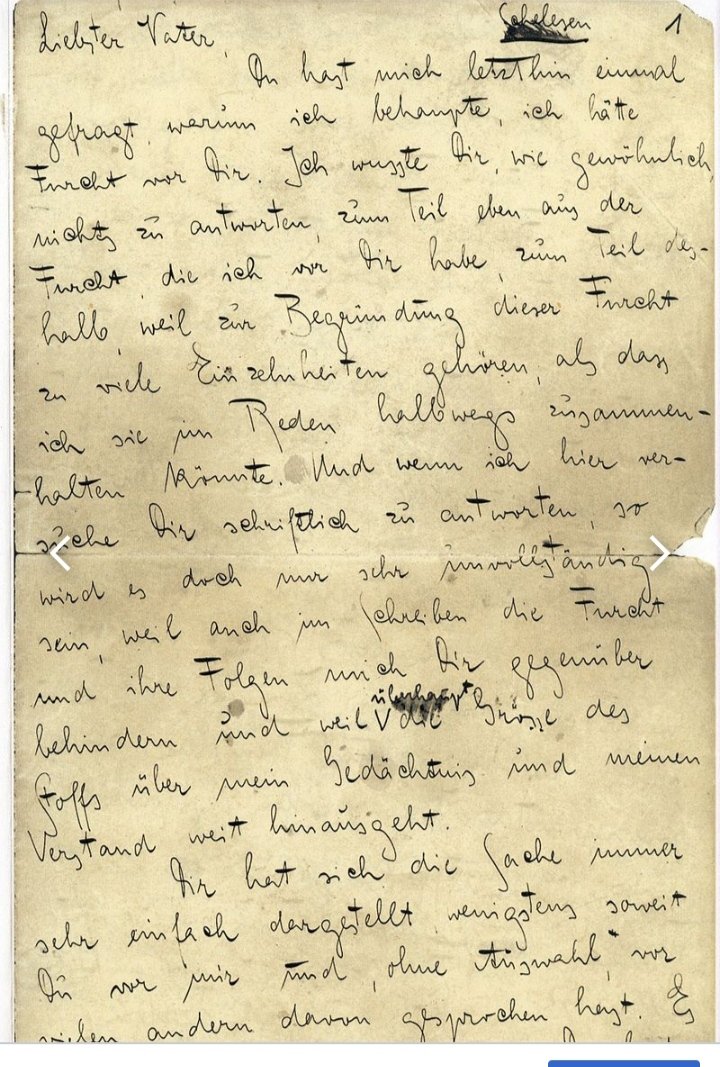 Schelesen 1
Liebster Vater,
Du hast mich letzthin einmal
gefragt, warum ich behaupte, ich hätte
Furcht vor Dir. Ich wusste Dir, wie gewöhnlich,
nichts zu antworten, zum Teil eben aus der
Furcht, die ich vor Dir habe, zum Teil des-
halb, weil zur Begründung dieser Furcht
zu viele Einzelnheiten gehören, als dass
ich sie im Reden halbwegs zusammen-
halten könnte. Und wenn ich hier ver-
suche Dir schriftlich zu antworten, so
wird es doch nur sehr unvollständig
sein, weil auch im Schreiben die Furcht
und ihre Folgen mich Dir gegenüber
überhaupt
behindern und weil die Grösse des
Stoffs über mein Gedächtnis und meinen
Verstand weit hinausgeht.
Dir hat sich die Sache immer
sehr einfach dargestellt, wenigstens soweit
Du vor mir und, ohne Auswahl, vor
vielen andern davon gesprochen hast. Es